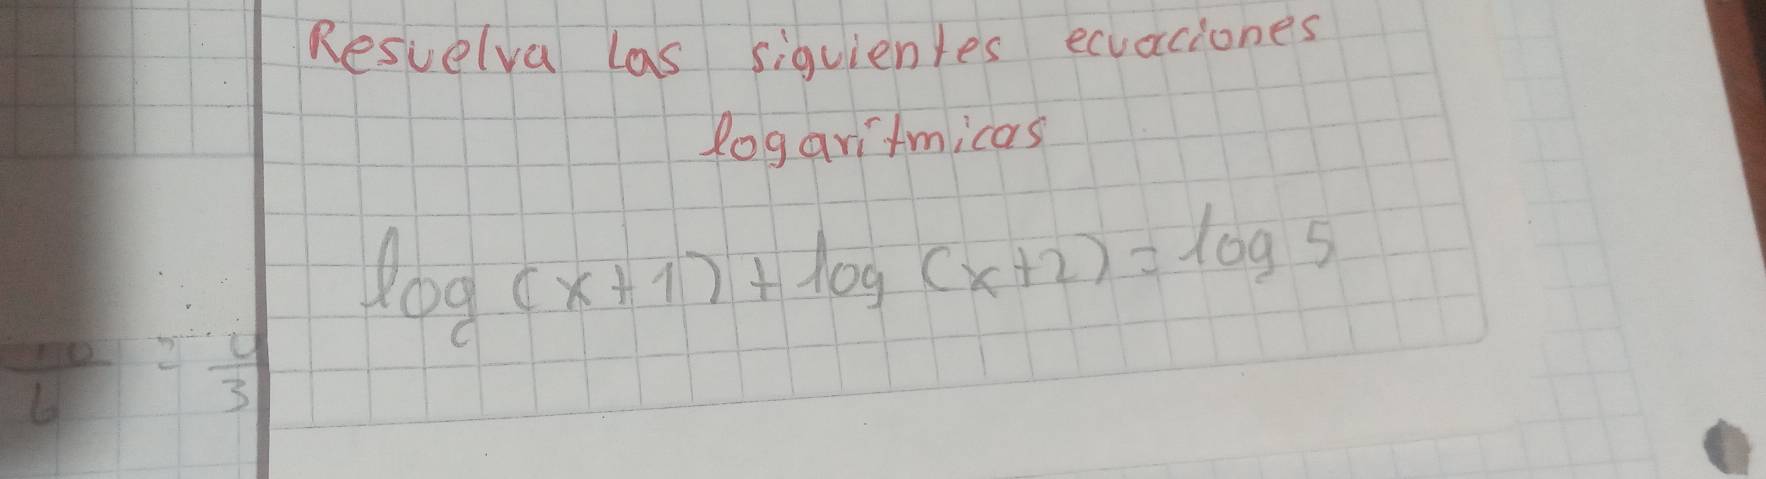 Resuelva las siguientes ecuaciones
logaritmicas
log (x+1) + log (x+2) = log 5
= 4/3